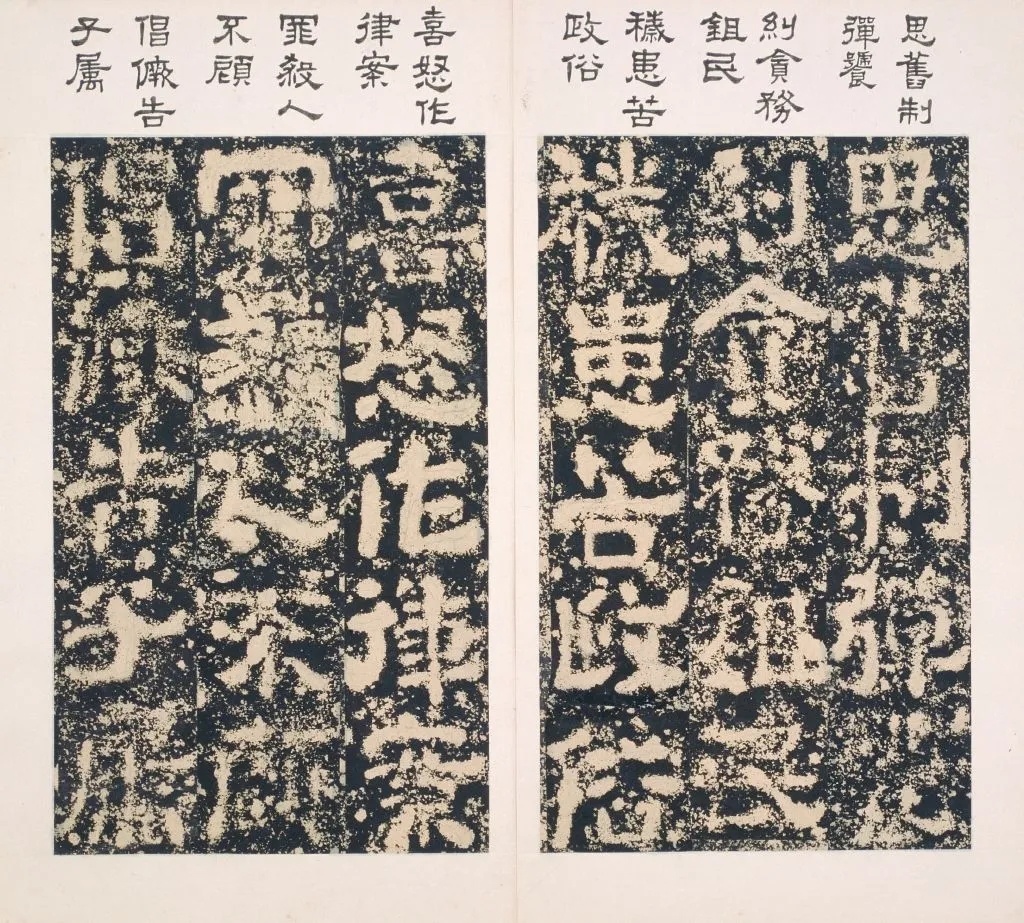 思舊制
彈饕
糾貪務
鉏民
穢患苦
政俗
喜怒作
律案
罪殺人
不顧
倡告
子屬
思舊制彈
糾貪務鉏民
穢患苦政俗
喜怒作律案
罪殺人不顧
倡告子屬